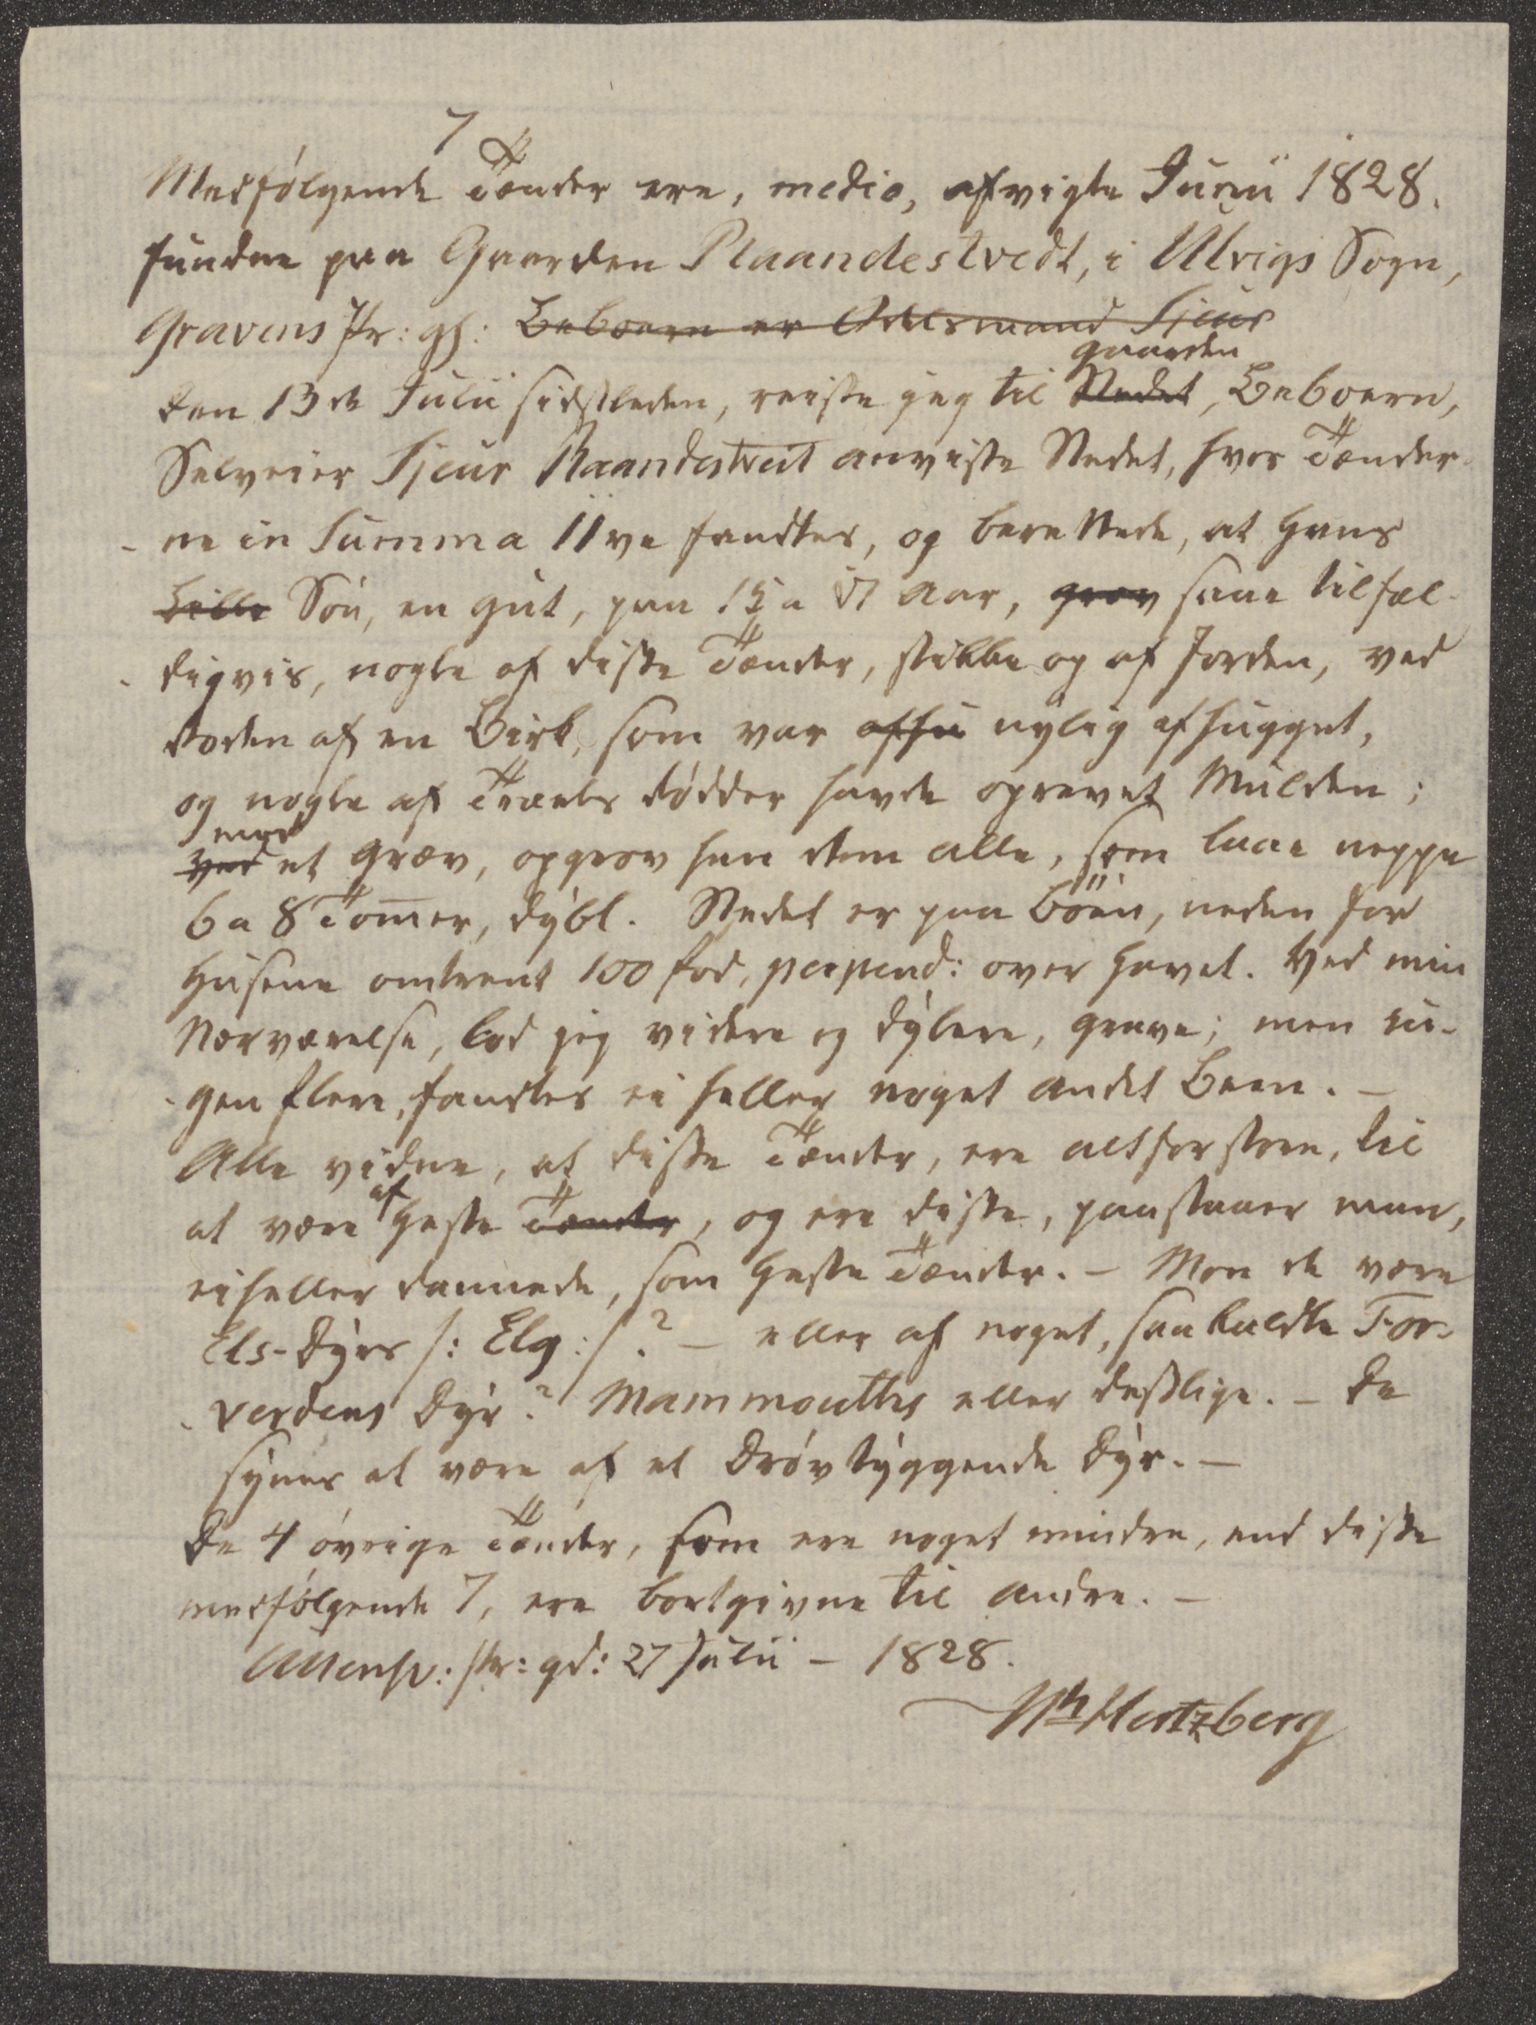 7
Medfølgende Tænder ere, medio, afvigte Junii 1828.
fundne paa Gaarden Raandestvedt, i Ulvigs Sogn,
Gravens Pr: gj: Beboeren er Odelsmand Sjur
Den 13de Julii sidstleden, reiste jeg til Stedet gaarden, Beboeren,
Selveier Sjur Raandestveit anviste Stedet, hvor Tænder-
- ne in Summa 11ve fandtes, og berettede, at hans
Lille Søn, en gut, paa 15 a 17 Aar, grov saae tilfæl-
- digvis, nogle af disse Tænder, stikke op af Jorden, ved
Roden af en Birk, som var afhu nylig afhugget,
og nogle af Træets Rødder havde oprevet Mulden;
ved med et Græv, opgrov han dem alle, som laae neppe
6 a 8 Tommer, dybt. Stedet er paa Bøen, neden for
Husene omtrent 100 fod, perpend: over Havet. Ved min
Nærværelse, lod jeg videre og dybere, grave; men in-
- gen flere, fandtes ei heller noget andet Been. –
Alle vidne, at disse Tænder, ere altfor store, til
at være af Heste Tænder, og ere disse, paastaaer man,
ei heller dannede, som Heste Tænder. – Mon de være
Els-Dyrs /: Elg :/ ? – eller af noget, saa kaldte For-
- verdens Dyr? Mammouths eller deslige. – De
synes at være af et Drøvtyggende Dyr. –
De 4 øvrige Tænder, som ere noget mindre, end disse
medfølgende 7, ere bortgivne til Andre. –
Ullensv: Pr: gd: 27 Julii – 1828.
Ns Hertzberg